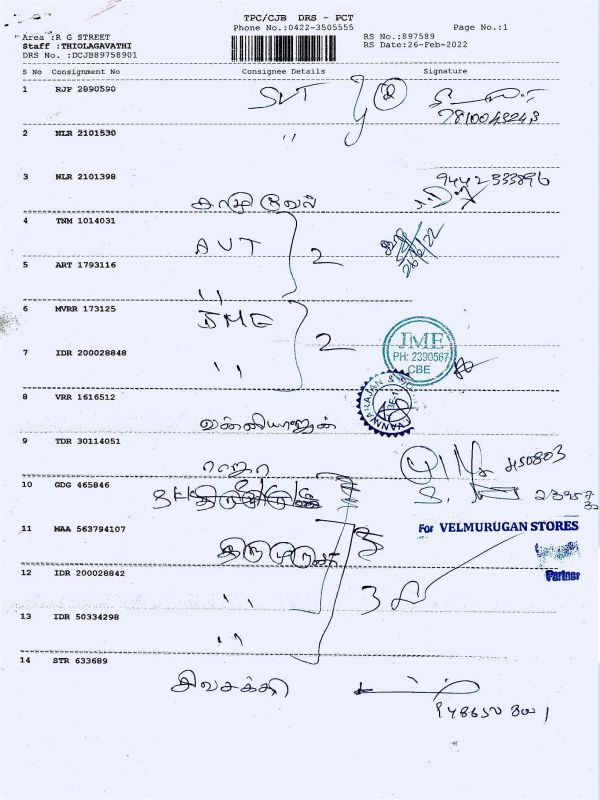 TPC/CJB DRS - PCT
Phone No.:0422-3505555
Page No.:1
Area :R G STREET
RS No.:897589
Staff :THIOLAGAVATHI
RS Date:26-Feb-2022
DRS No. :DCJB89758901
S No Consignment No Consignee Details Signature
1 RJP 2890590 SVT 2
7810043243
2 NLR 2101530 ,,
3 NLR 2101398 9442533896
4 TNM 1014031
AVT 2 26/2/22
5 ART 1793116
,,
6 MVRR 173125 JME
2 JME
7 IDR 200028848 PH: 2390567
,, CBE
8 VRR 1616512
9 TDR 30114051
ராஜா
10 GDG 465846
For VELMURUGAN STORES
11 MAA 563794107
Partner
12 IDR 200028842
,, 3
13 IDR 50334298
,,
14 STR 633689
சிவசக்தி